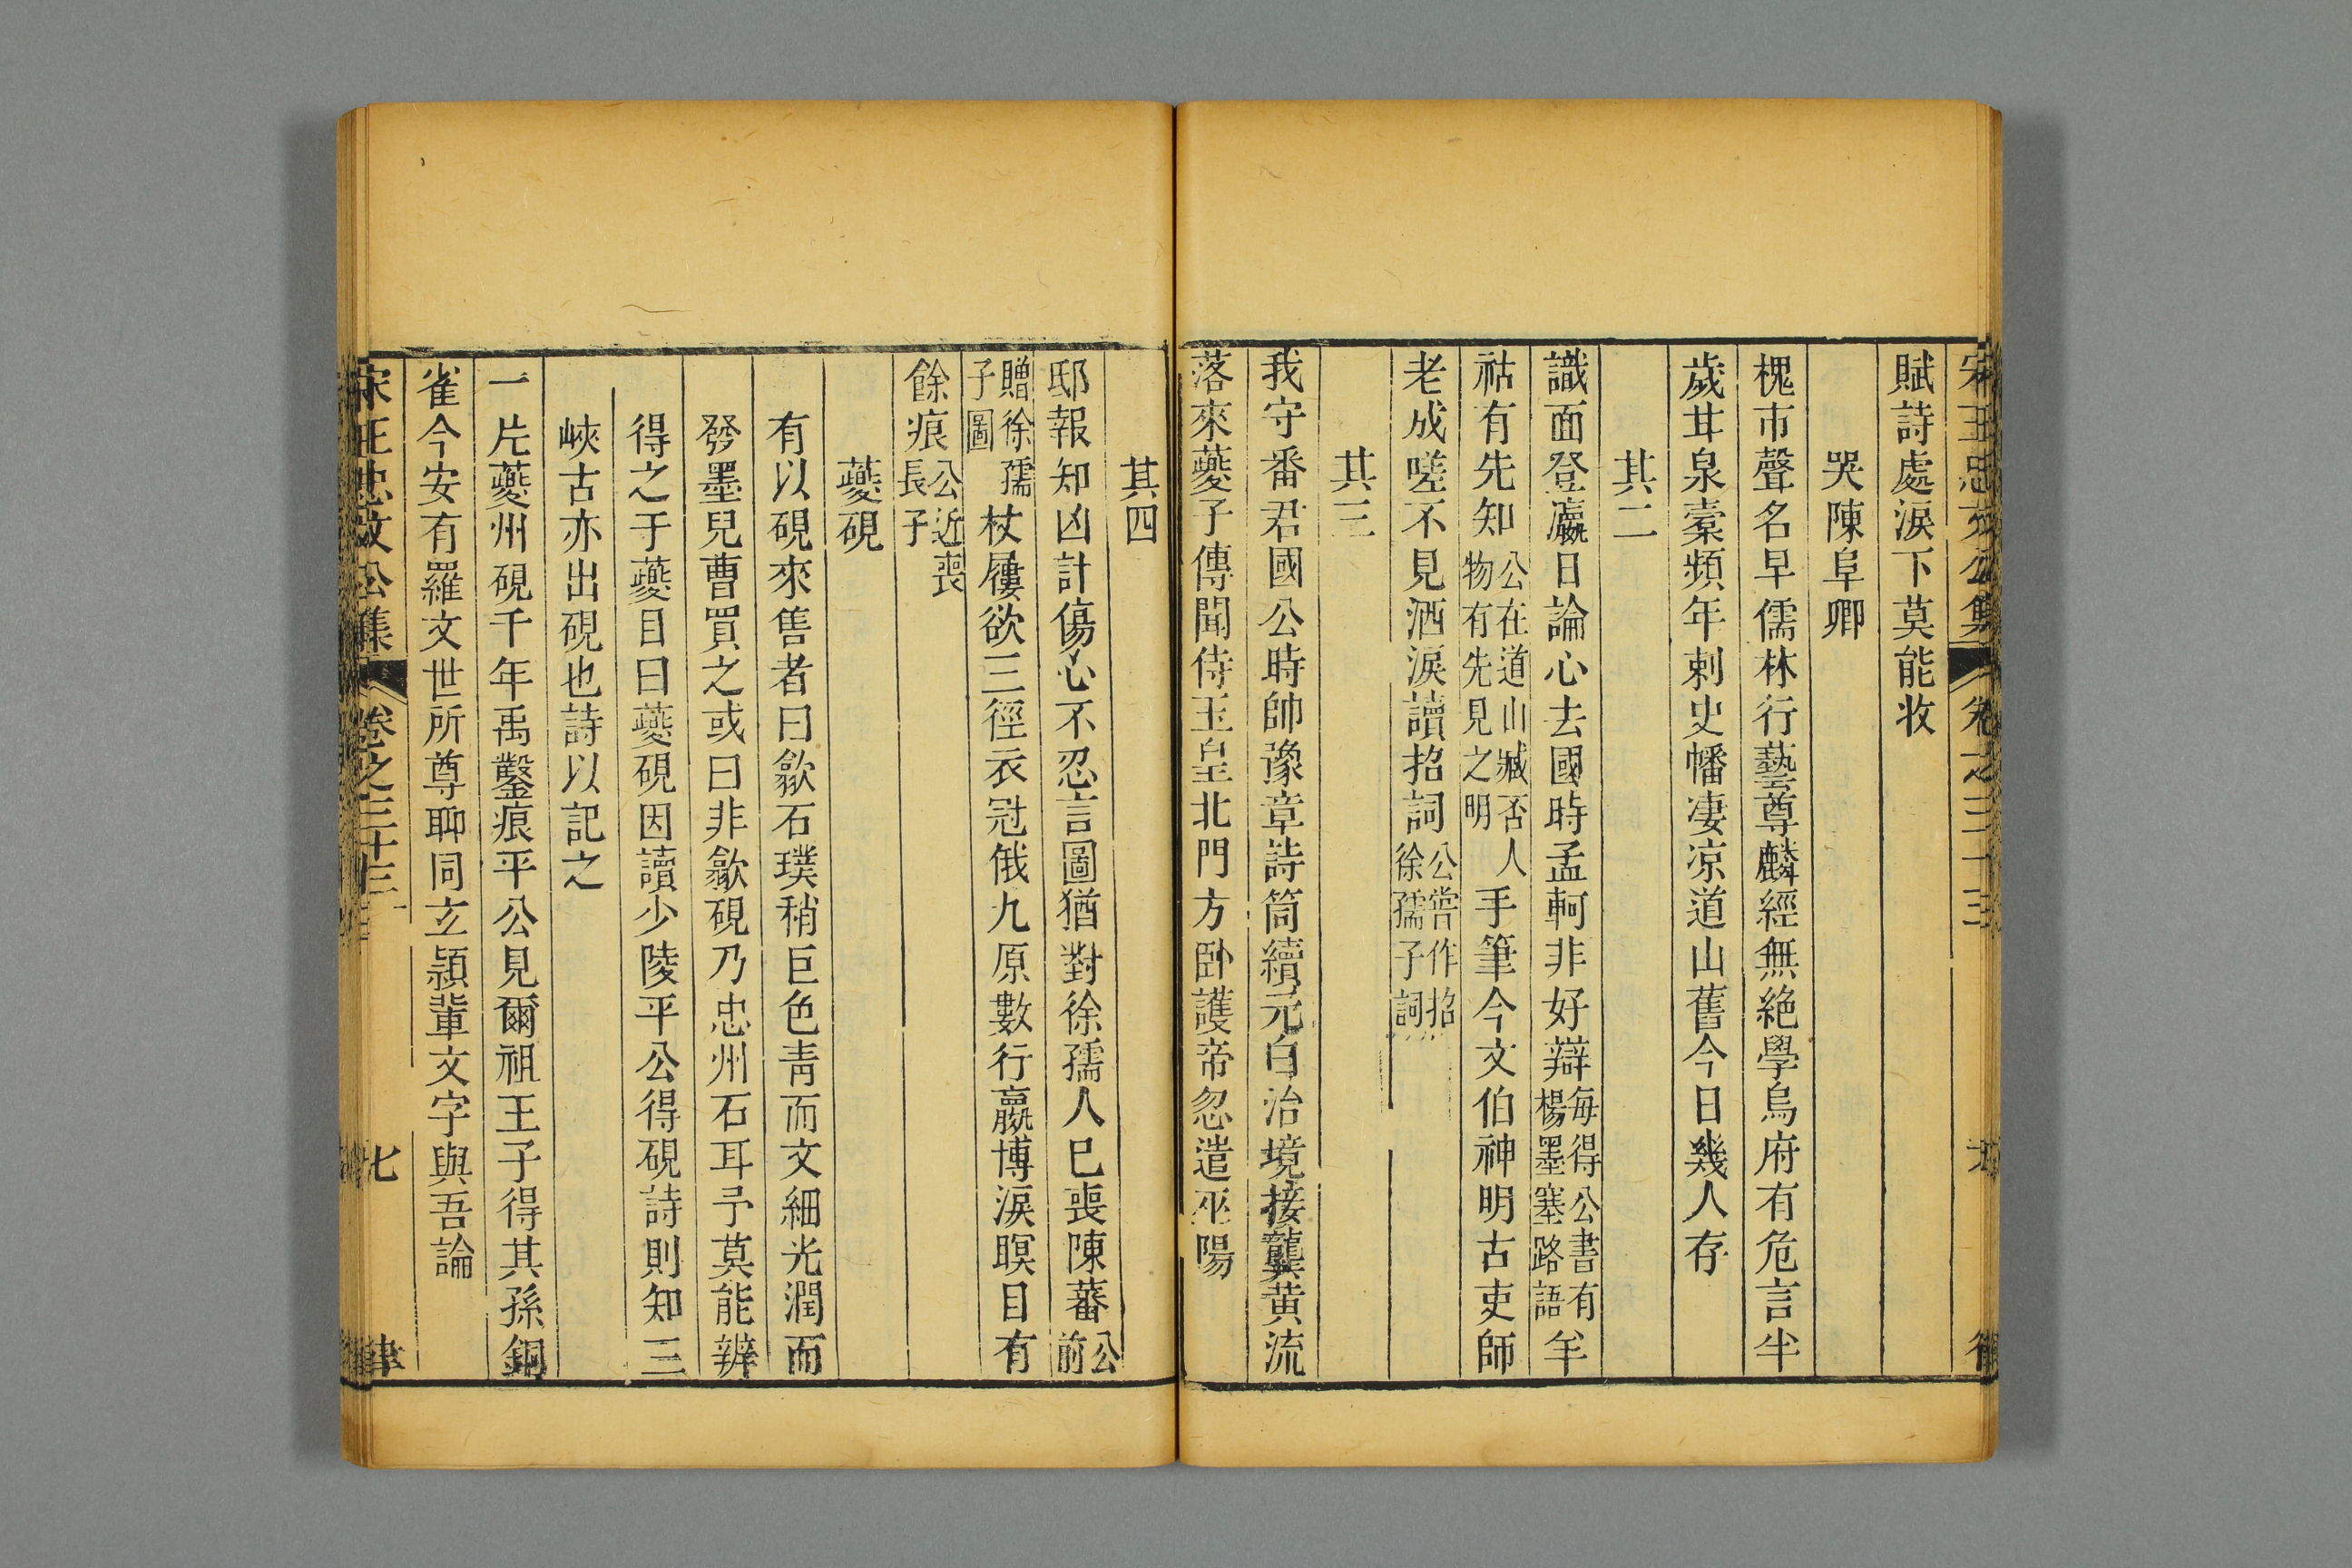 宋王忠文公集 卷之三十三
賦詩處淚下莫能收
哭陳阜卿
槐市聲名早儒林行藝尊麟經無絕學烏府有危言半
歲甘泉橐頻年刺史幡凄凉道山舊今日幾人存
其二
識面登瀛日論心去國時孟軻非好辯每得公書有楊墨塞路語羊
祜有先知公在道山臧否人物有先見之明手筆今文伯神明古吏師
老成嗟不見洒淚讀招詞公嘗作招徐孺子詞
其三
我守番君國公時帥豫章詩筒續元白治境接龔黄流
落來夔子傳聞侍玉皇北門方卧護帝忽遣巫陽
其四
邸報知凶計傷心不忍言圖猶對徐孺人已喪陳蕃公前
贈徐孺子圖杖屨欲三徑衣冠俄九原數行嬴博淚瞑目有
餘痕公近喪長子
夔硯
有以硯來售者曰歙石璞稍巨色靑而文細光潤而
發墨兒曹買之或曰非歙硯乃忠州石耳予莫能辨
得之于夔目曰夔硯因讀少陵平公得硯詩則知三
峽古亦出硯也詩以記之
一片夔州硯千年禹鑿痕平公見爾祖王子得其孫銅
雀今安有羅文世所尊聊同玄頴輩文字與吾論
宋王忠文公集 卷之三十三 七 律